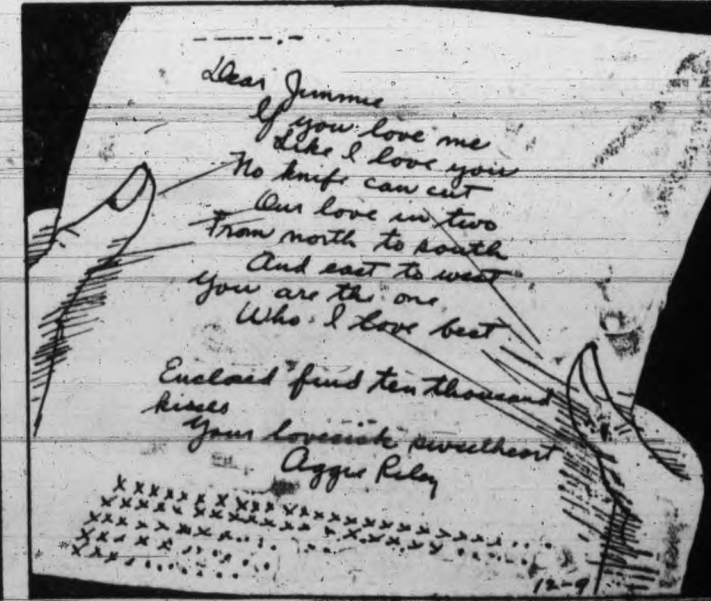 Dear Jimmie
If you love me
Like I love you
No knife can cut
Our love in two
From north to south
And east to west
You are the one
Who I love best
Enclosed find ten thousand
kisses
Your lovesick sweetheart
Aggie Riley
x x x x x x x x x x x x x x x x x x x x x x
x x x x x x x x x x x x x x x x x x x
x x x x x x x x x
x x x x x
x x x x
12-9